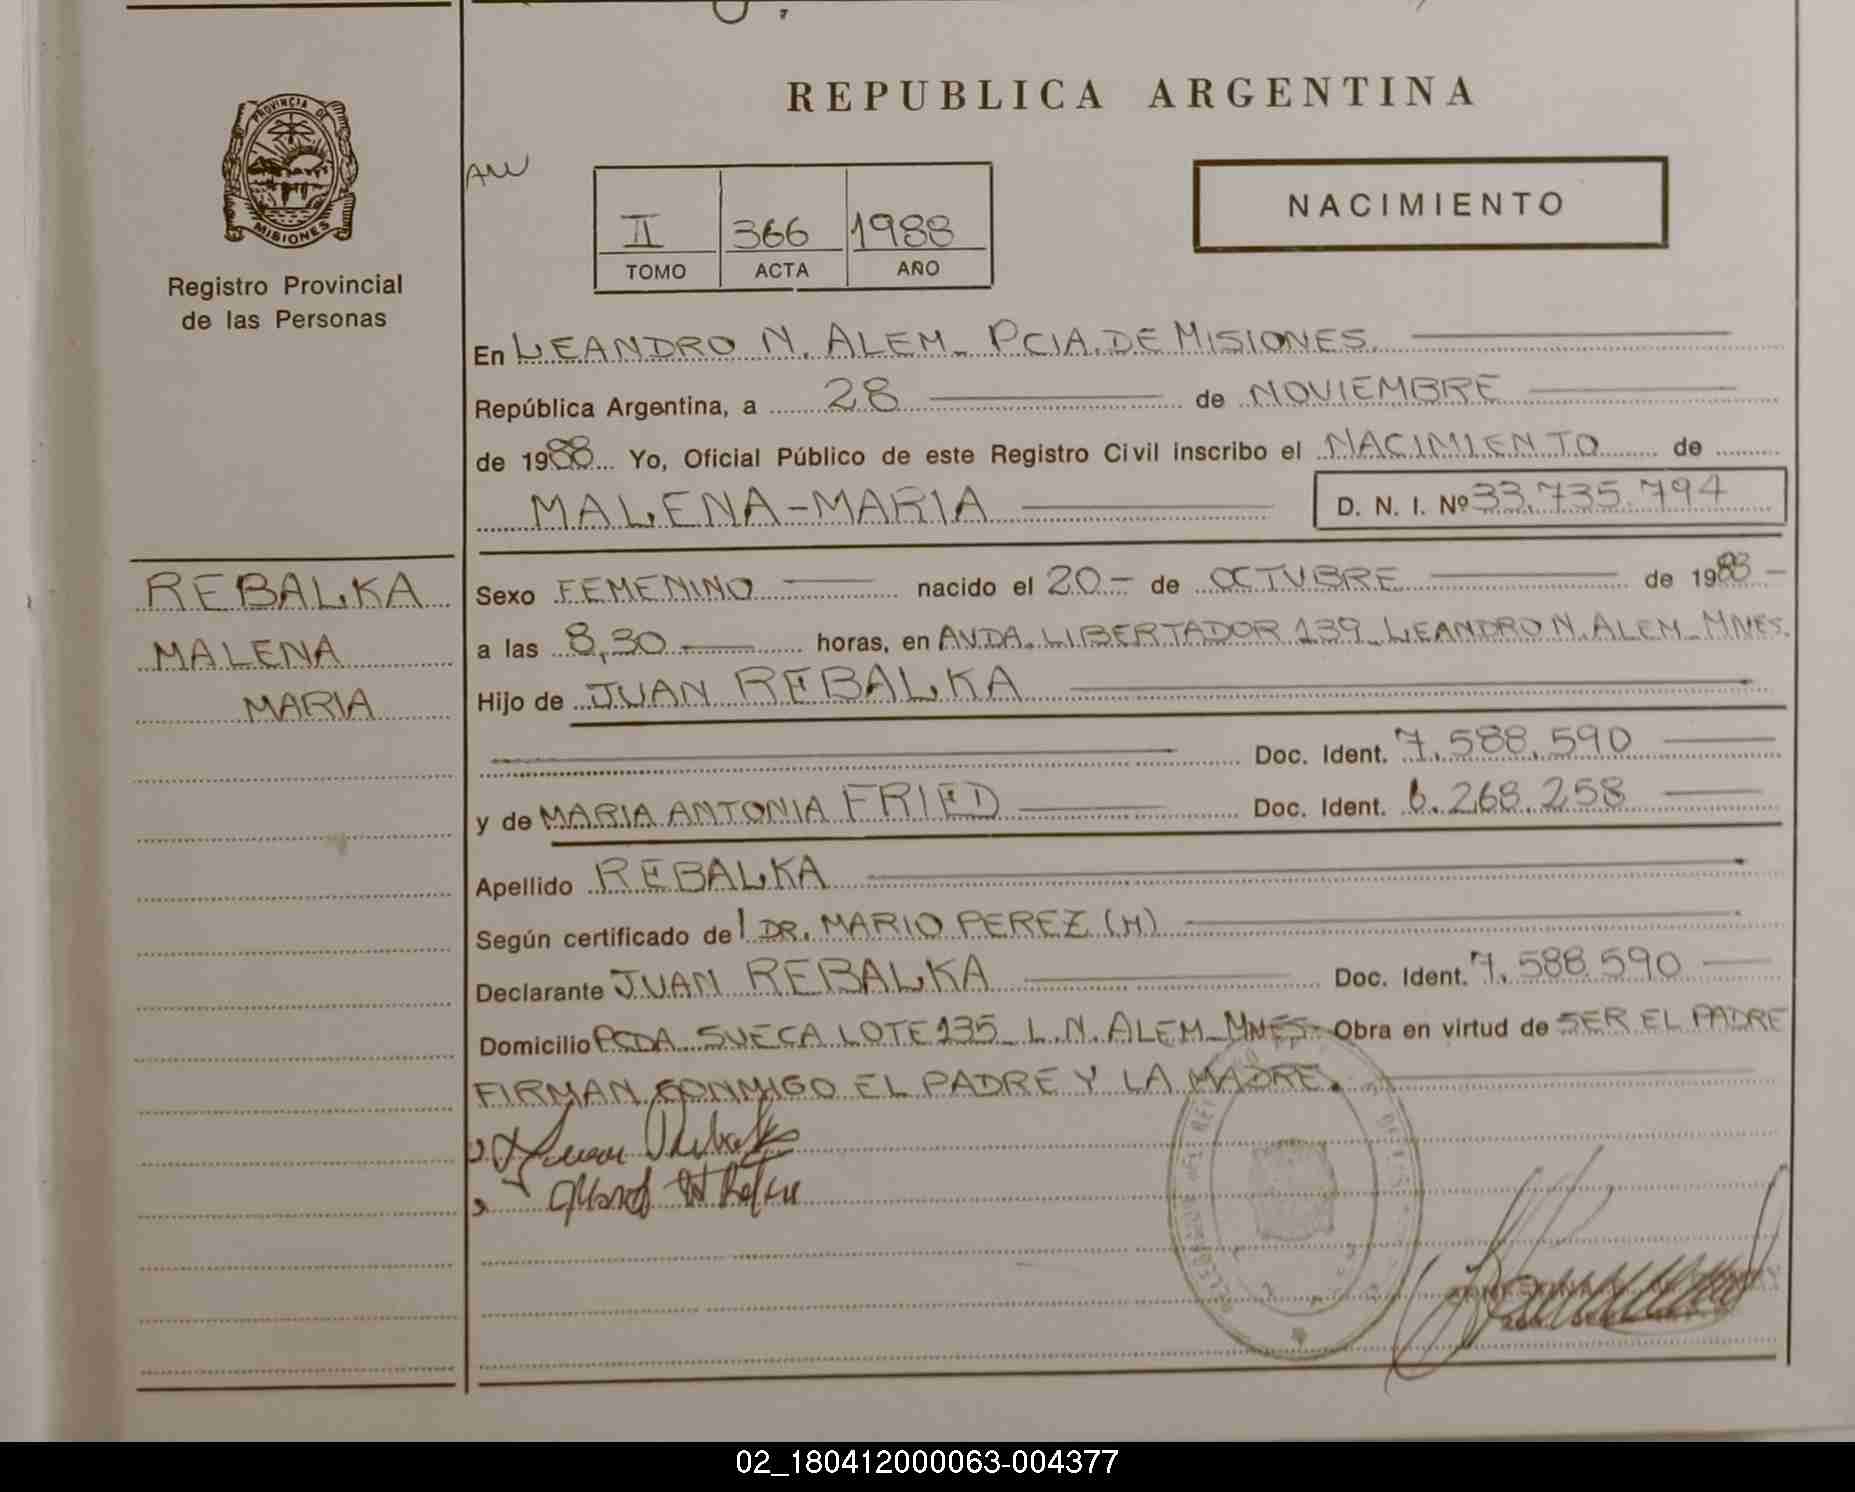 REPUBLICA ARGENTINA
PROVINCIA DE
MISIONES
Registro Provincial
de las Personas
II 366 1988
TOMO ACTA AÑO
NACIMIENTO
En LEANDRO N. ALEM_ PCIA. DE MISIONES.
República Argentina, a 28 de NOVIEMBRE
de 1988 Yo, Oficial Público de este Registro Civil inscribo el NACIMIENTO de
MALENA-MARIA D. N. I. Nº 33.735.794
REBALKA
MALENA
MARIA
Sexo FEMENINO nacido el 20- de OCTUBRE de 1988-
a las 8,30 horas, en AVDA. LIBERTADOR 139_ LEANDRO N. ALEM_ MNES.
Hijo de JUAN REBALKA
Doc. Ident. 7.588.590
y de MARIA ANTONIA FRIED Doc. Ident. 6.268.258
Apellido REBALKA
Según certificado del DR. MARIO PEREZ (H)
Declarante JUAN REBALKA Doc. Ident. 7.588.590
Domicilio PCDA SUECA LOTE 135_ L.N. ALEM_ MNES- Obra en virtud de SER EL PADRE
FIRMAN CONMIGO EL PADRE Y LA MADRE.
02_180412000063-004377